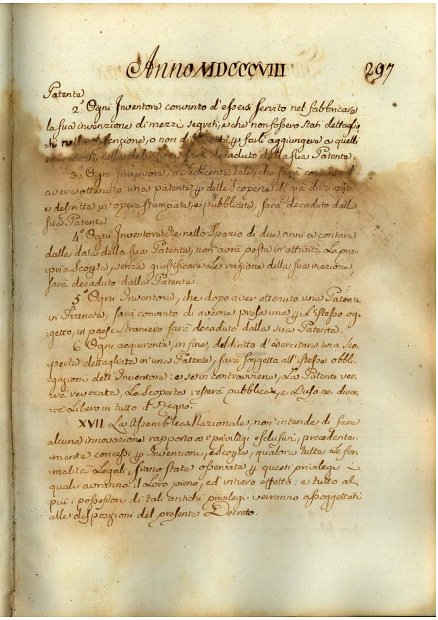 Anno MDCCCVIII 297
Patenta
2.° Ogni Inventore convinto d'essersi servito nel fabbricare
la sua invenzione di mezzi segreti, e che non fossero stati dettaglia
nella descrizione, o non di farli aggiungere a quelli
nella sarà decaduto dalla sua Patenta.
3.° Ogni Inventore, che sarà convinto d'
avere ottenuto una patenta delle Scoperte di già
e descritte in opera stampata, e pubblicata, sarà decaduto dalla
sua Patenta
4.° Ogni Inventore che nello spazio di due anni a contare
dalla data della sua Patenta, non avrà posta in attività la pro
pria Scoperta, senza giustificare le ragione della sua inazione,
sarà decaduto dalla Patenta
5.° Ogni Inventore, che dopo aver ottenuto una Patenta
in Francia, sarà convinto di averne presa una l'istesso og
getto, in paese straniero sarà decaduto dalla sua Patenta.
6. Ogni acquirente, in fine, del diritto d'esercitare una Sco
perta dettagliata in una Patenta, sarà soggetto all'istesse obbli
gazioni dell'Inventore: e se in contravviene, la Patente ver
rà revocata, la Scoperta resterà pubblica, e l'uso ne diver
rà Libero in tutto il Regno.
XVII La Assemblea Nazionale, non intende di fare
alcuna innovazione rapporto a privilegi esclusivi, precedente
mente concessi Invenzioni, e Scoperte, qualora tutte le for
malità Legali, siano state osservate questi privilegi i
quali avranno il Loro pieno, ed intiero effetto: e tutto al
più i possessori di tali antichi privilegi verranno assoggettati
alle disposizioni del presente Decreto.